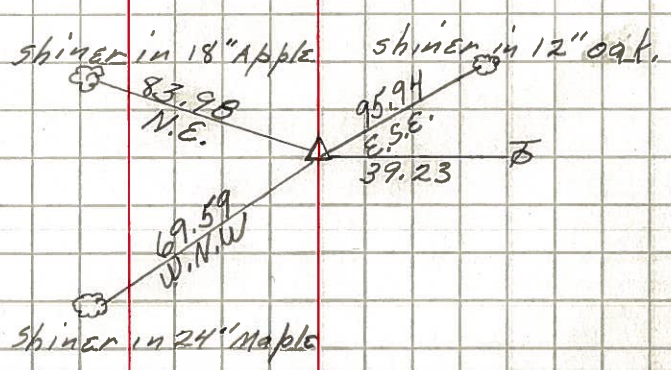 shiner in 18" Apple
shiner in 12" oak.
83.98
N.E.
95.94
E.S.E.
39.23
69.59
W.N.W
shiner in 24" Maple